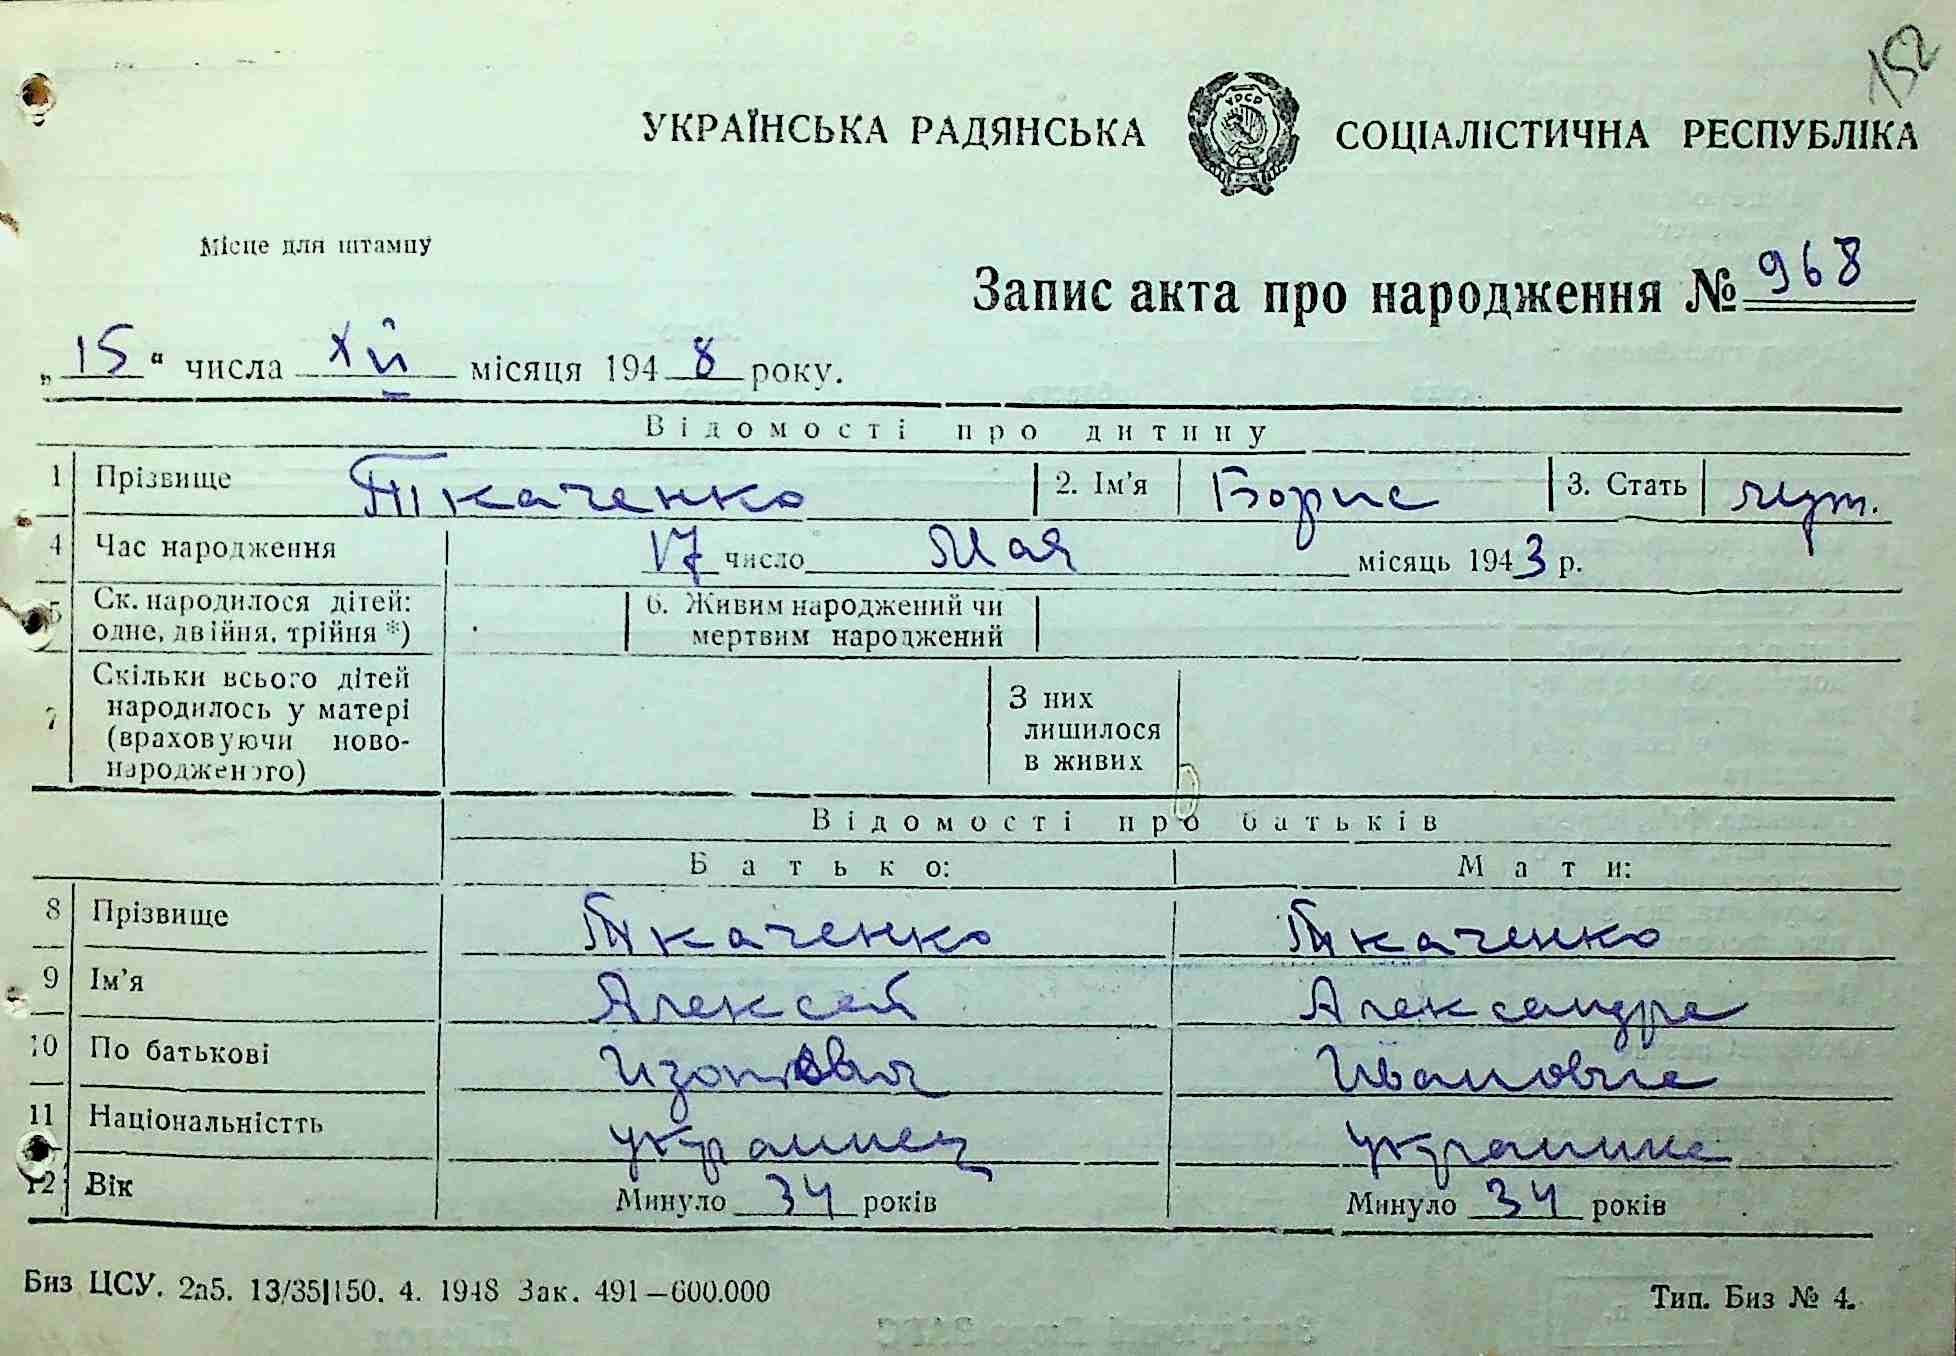 152
УКРАЇНСЬКА РАДЯНСЬКА СОЦІАЛІСТИЧНА РЕСПУБЛІКА
УРСР
Місце для штампу
Запис акта про народження № 968
„15“ числа XII місяця 1948 року.
Відомості про дитину
1 Прізвище Ткаченко 2. Ім'я Борис 3. Стать муж.
4 Час народження 17 число Мая місяць 1943 р.
5 Ск. народилося дітей: одне, двійня, трійня *) 6. Живим народжений чи мертвим народжений
7 Скільки всього дітей народилось у матері (враховуючи ново-народженого) З них лишилося в живих
Відомості про батьків
Батько: Мати:
8 Прізвище Ткаченко Ткаченко
9 Ім'я Алексей Александра
10 По батькові Изотович Ивановна
11 Національністть украинец украинка
12 Вік Минуло 34 років Минуло 34 років
Биз ЦСУ. 2а5. 13/35|150. 4. 1948 Зак. 491—600.000 Тип. Биз № 4.